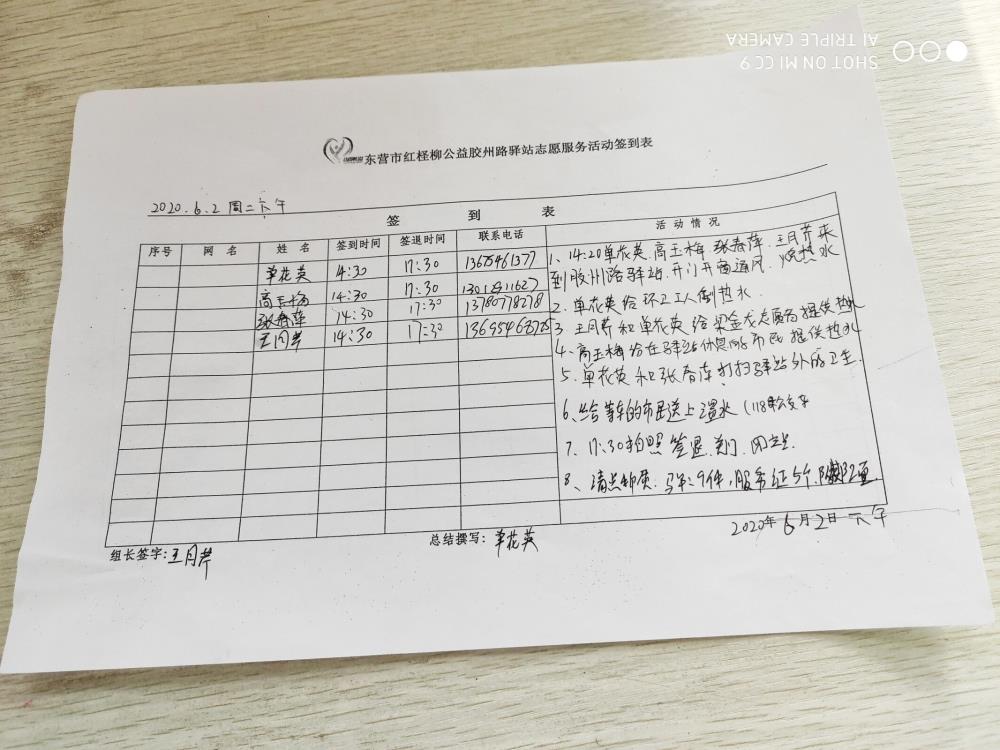 SHOT ON MI CC 9
AI TRIPLE CAMERA
东营市红柽柳公益胶州路驿站志愿服务活动签到表
2020.6.2 周二下午
签到表
序号 网名 姓名 签到时间 签退时间 联系电话 活动情况
单花英 14:30 17:30 13675461377
高玉梅 14:30 17:30
张春萍 14:30 17:30 13780778278
王月芹 14:30 17:30
1、14:20单花英、高玉梅、张春萍、王月芹来
到胶州路驿站,开门开窗通风、烧热水
2、单花英给环卫工人倒热水.
3、王月芹和单花英给梁金龙志愿者提供热水
4、高玉梅给在驿站休息的市民提供热水
5、单花英和张春萍打扫驿站外的卫生.
6、给等车的市民送上温水(118路公交车
7、17:30拍照 签退、关门、
8、清点物资: 马甲:9件,服务证5个,
2020年6月2日下午
组长签字:王月芹
总结撰写:单花英